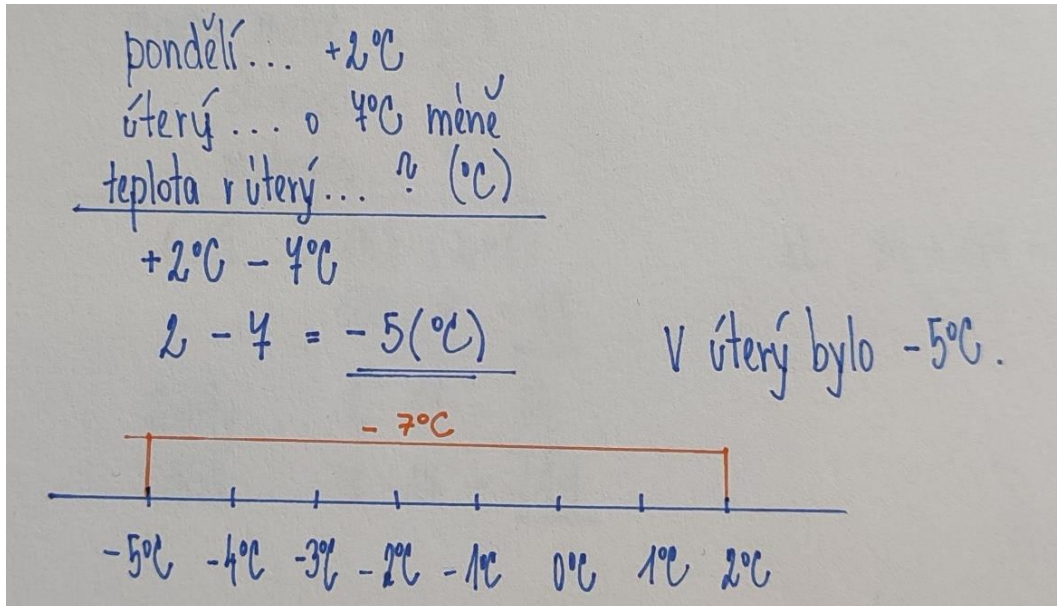 pondělí... +2°C
úterý... o 7°C méně
teplota v úterý... ? (°C)
+2°C - 7°C
2 - 7 = - 5(°C)
V úterý bylo -5°C.
- 7°C
-5°C -4°C -3°C -2°C -1°C 0°C 1°C 2°C